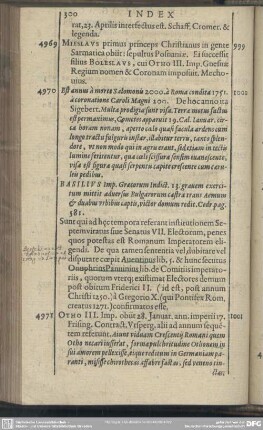 300 INDEX
rat, 23. Aprilis interfectus est. Schaff. Cromer. &
legenda.
4969 MIESLAVS primus princeps Christianus in gente 999
Sarmatica obiit: sepultus Posnaniæ. Ei successit
filius BOLESLAVS, cui OTHO III. Imp. Gnesnæ
Regium nomen & Coronam imposuit. Mecho-
uius.
4970 Est annus à morte Salomonis 2000. à Roma condita 1751. 1000
à coronatione Caroli Magni 200. De hoc anno ita
Sigebert. Multa prodigia sunt visa. Terræ motus factus
est permaximus, Cometes apparuit 19. Cal. Ianuar. cir-
ca horam nonam, aperto cælo quasi facula ardens cum
longo tractu fulguris instar, illabitur terris, tanto splen-
dore, vt non modo qui in agris erant, sed etiam in tectis
lumine ferirentur, qua cæli scissura sensim euanescente,
visa est figura quasi serpentis capite crescente cum cæru-
leis pedibus.
BASILIVS Imp. Græcorum Indict. 13. grauem exerci-
tum mittit aduersus Bulgarorum castra trans Æmum
& duabus vrbibus captis, victor domum redit. Cedr. pag.
381.
Sunt qui ad hęc tempora referant institutionem Se-
ptemuiratus siue Senatus VII. Electorum, penes
quos potestas est Romanum Imperatorem eli-
gendi. De qua tamen sententia vel dubitare vel
disputare cœpit Auentinus lib. 5. & longe secutus
Onuphrius Panuinius lib. de Comitiis imperato-
riis, quorum vterq; existimat Electores demum
post obitum Friderici II. (id est, post annum
Christi 1250.) à Gregorio X. (qui Pontifex Rom.
creatus 1271.) constitutos esse.
4971 OTHO III. Imp. obiit 28. Ianuar. ann. imperii 17. 1001
Frising. Contract. Vrsperg. alii ad annum sequē-
tem referunt. Aiunt viduam Crescentij Romani quem
Otho necari iusserat, formæ pulchritudine Othonem in
sui amorem pellexisse, eique reditum in Germaniam pa-
ranti, misisse chirothecas affabre factas, sed veneno il-
litas,